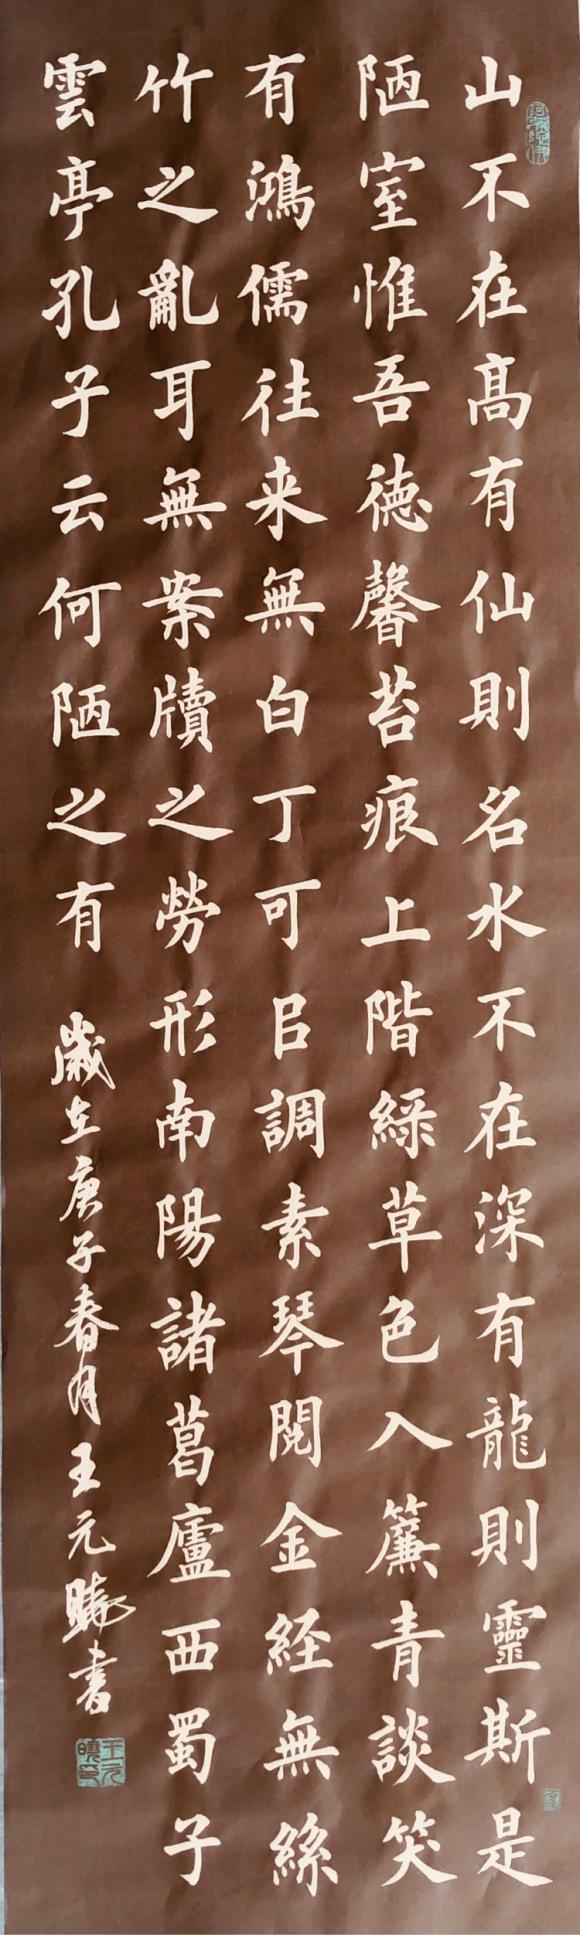 山不在高有仙則名水不在深有龍則靈斯是
陋室惟吾德馨苔痕上階綠草色入簾青談笑
有鴻儒往来無白丁可㠯調素琴閱金経無絲
竹之亂耳無案牘之勞形南陽諸葛廬西蜀子
雲亭孔子云何陋之有 歲在庚子春月王元曉書
王元曉印